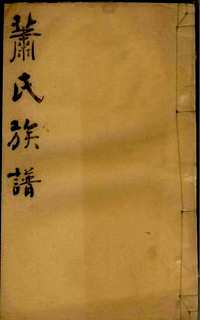 蕭氏族譜